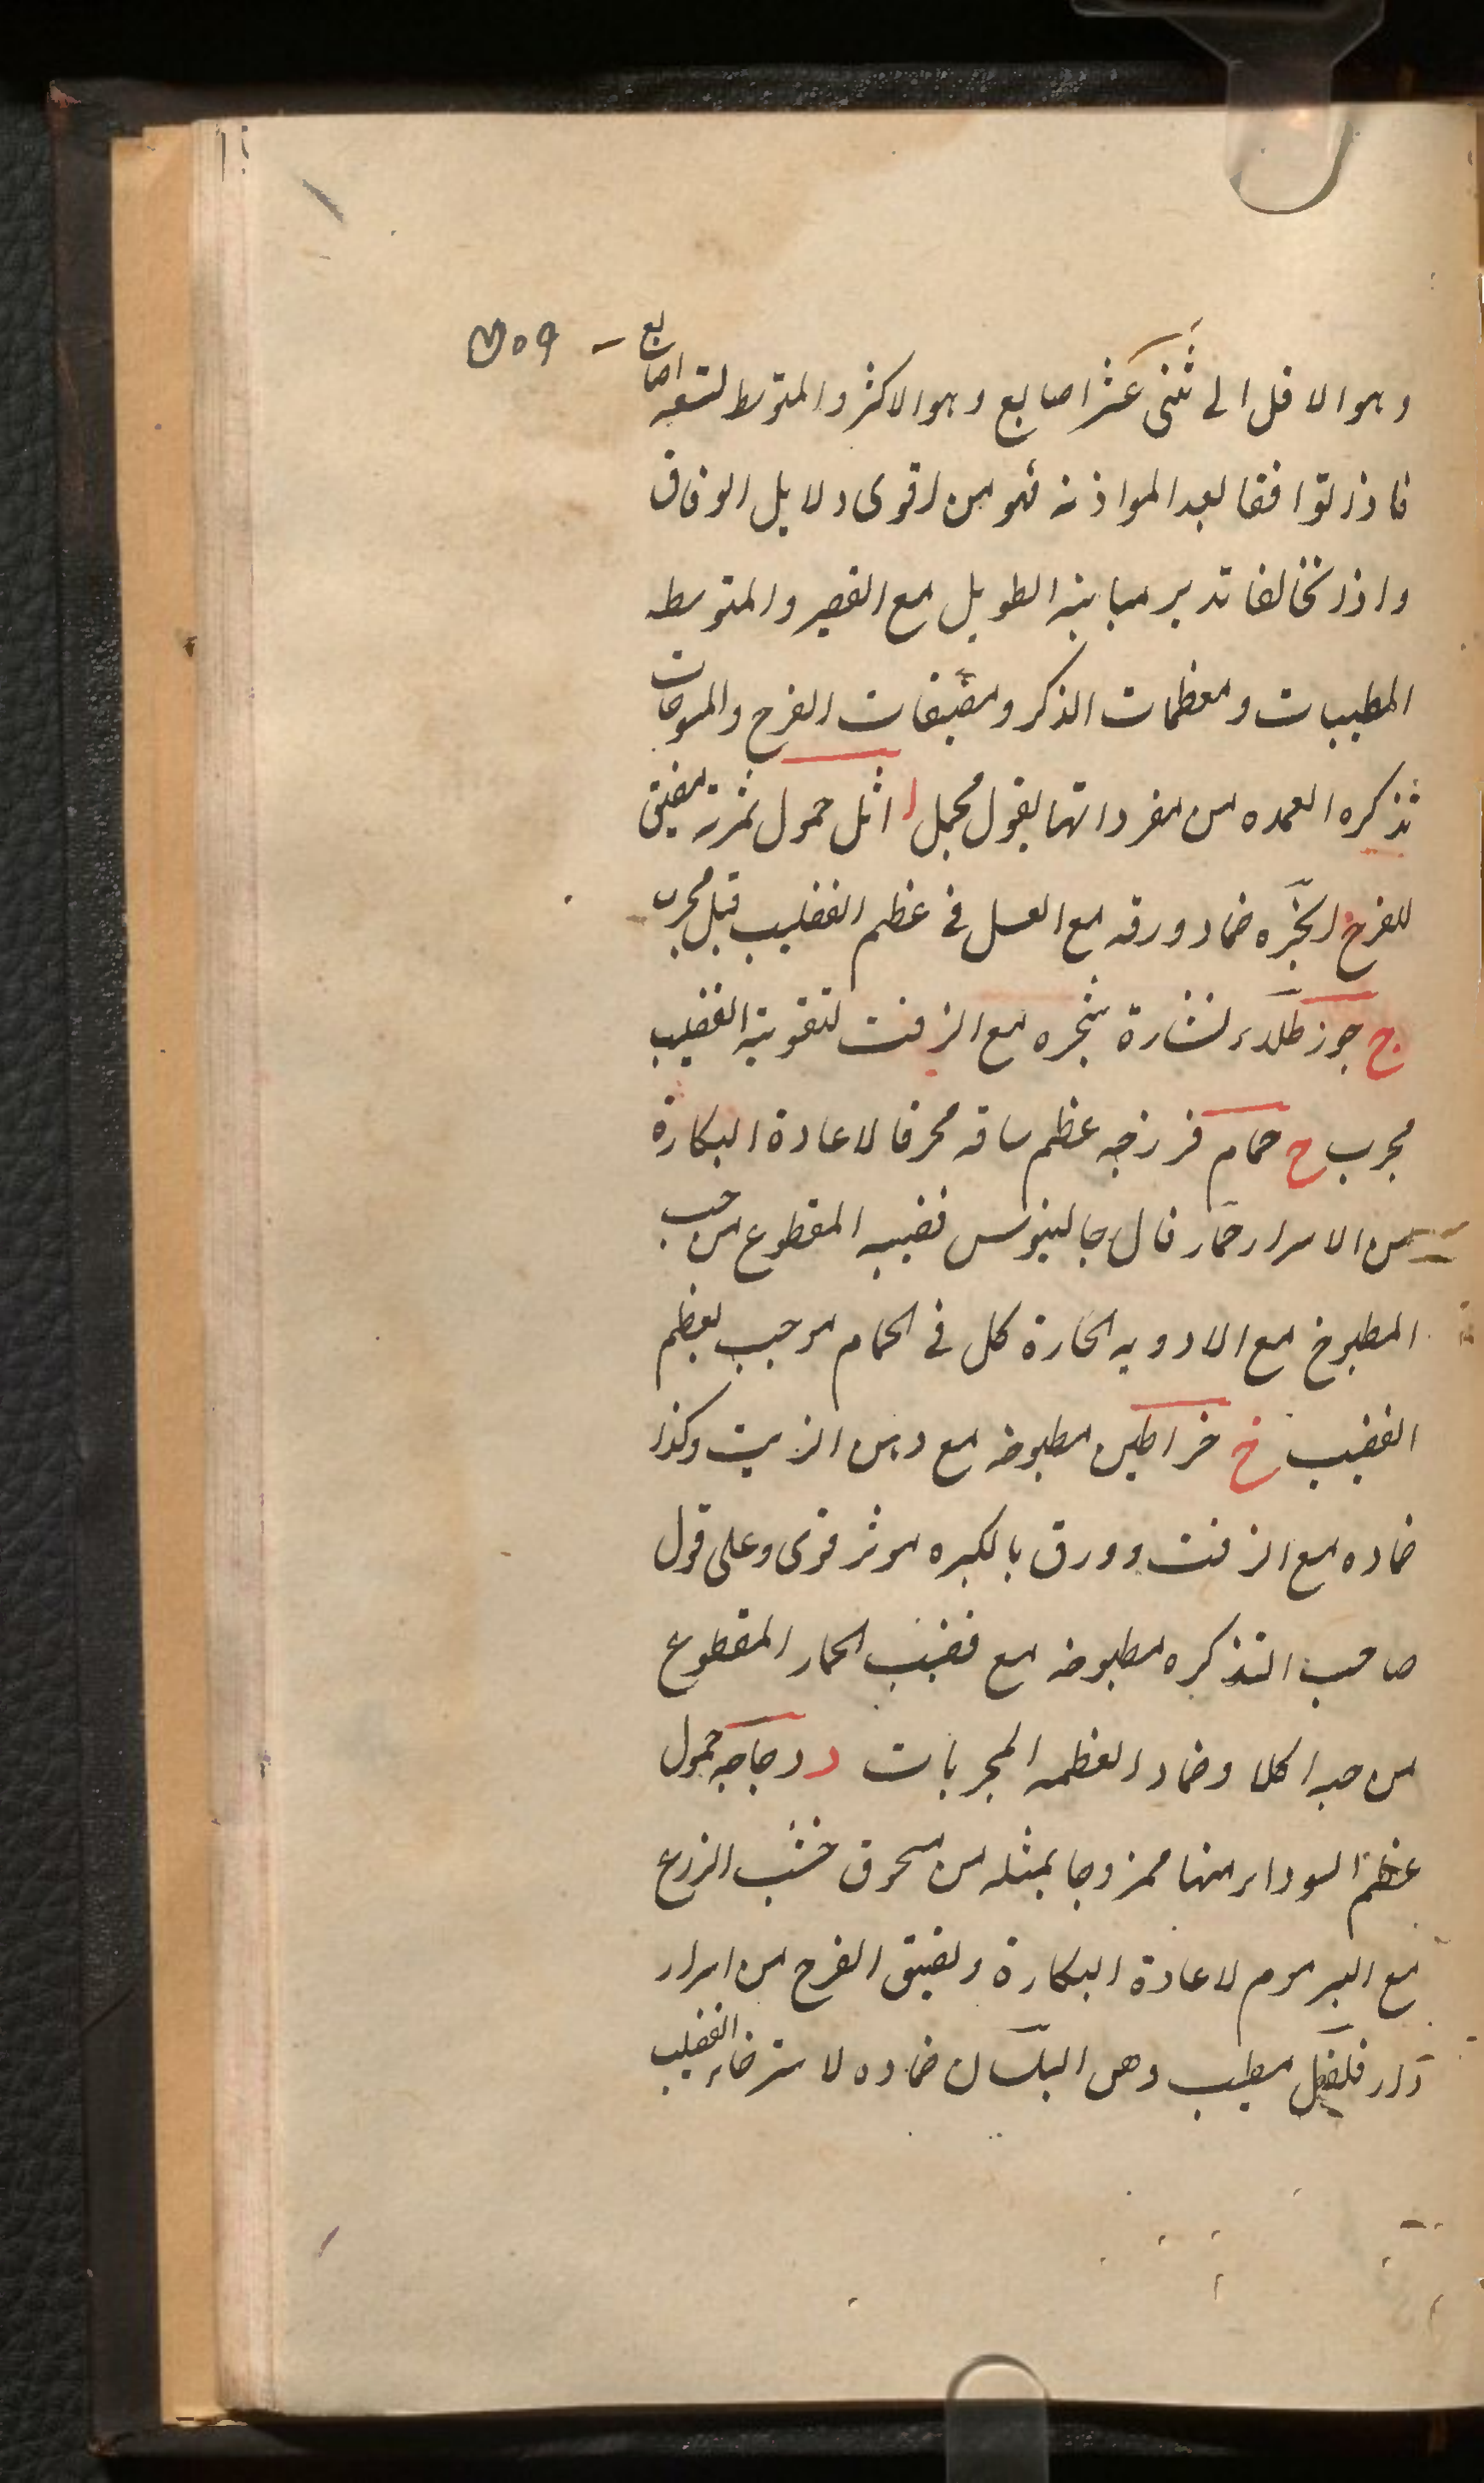 وهو الاقل الى ثنى عشر اصابع وهو الاكثر والمتوسط لتسعه اصابع
فاذا توافقا بعد الموازنه فهو من اقوى دلايل الوفاق
واذا تخالفا تدبر مباينه الطويل مع القصير والمتوسطه
المطيبات ومعظمات الذكر ومضيقات الفرج والمسوحات
تذكره العمده من مفرداتها بقول مجمل ا اثل حمول ثمرته مضيق
للفرج انجره ضماد ورقه مع العسل فى عظم القضيب قيل مجرب
ج جوز طلاء نشارة شجره مع الزفت لتقوية القضيب
مجرب ح حمام فرزجه عظم ساقه محرقا لاعادة البكارة
من الاسرار حمار قال جالينوس قضيبه المقطوع من حب
المطبوخ مع الادويه الحارة كل فى الحمام موجب لعظم
القضيب خ خراطين مطبوخه مع دهن الزيت وكذا
ضماده مع الزفت وورق بالكبره موثر قوى وعلى قول
صاحب التذكره مطبوخه مع قضيب الحمار المقطوع
من حبه اكلا وضماد العظمه المجربات د دجاجه حمول
عظم السوداء منها ممزوجا بمثله من مسحوق خشب الزرع
مع البرموم لاعادة البكارة وتضيق الفرج من اسرار
دار فلفل مطيب دهن البلسان ضماده لاسترخاء القضيب